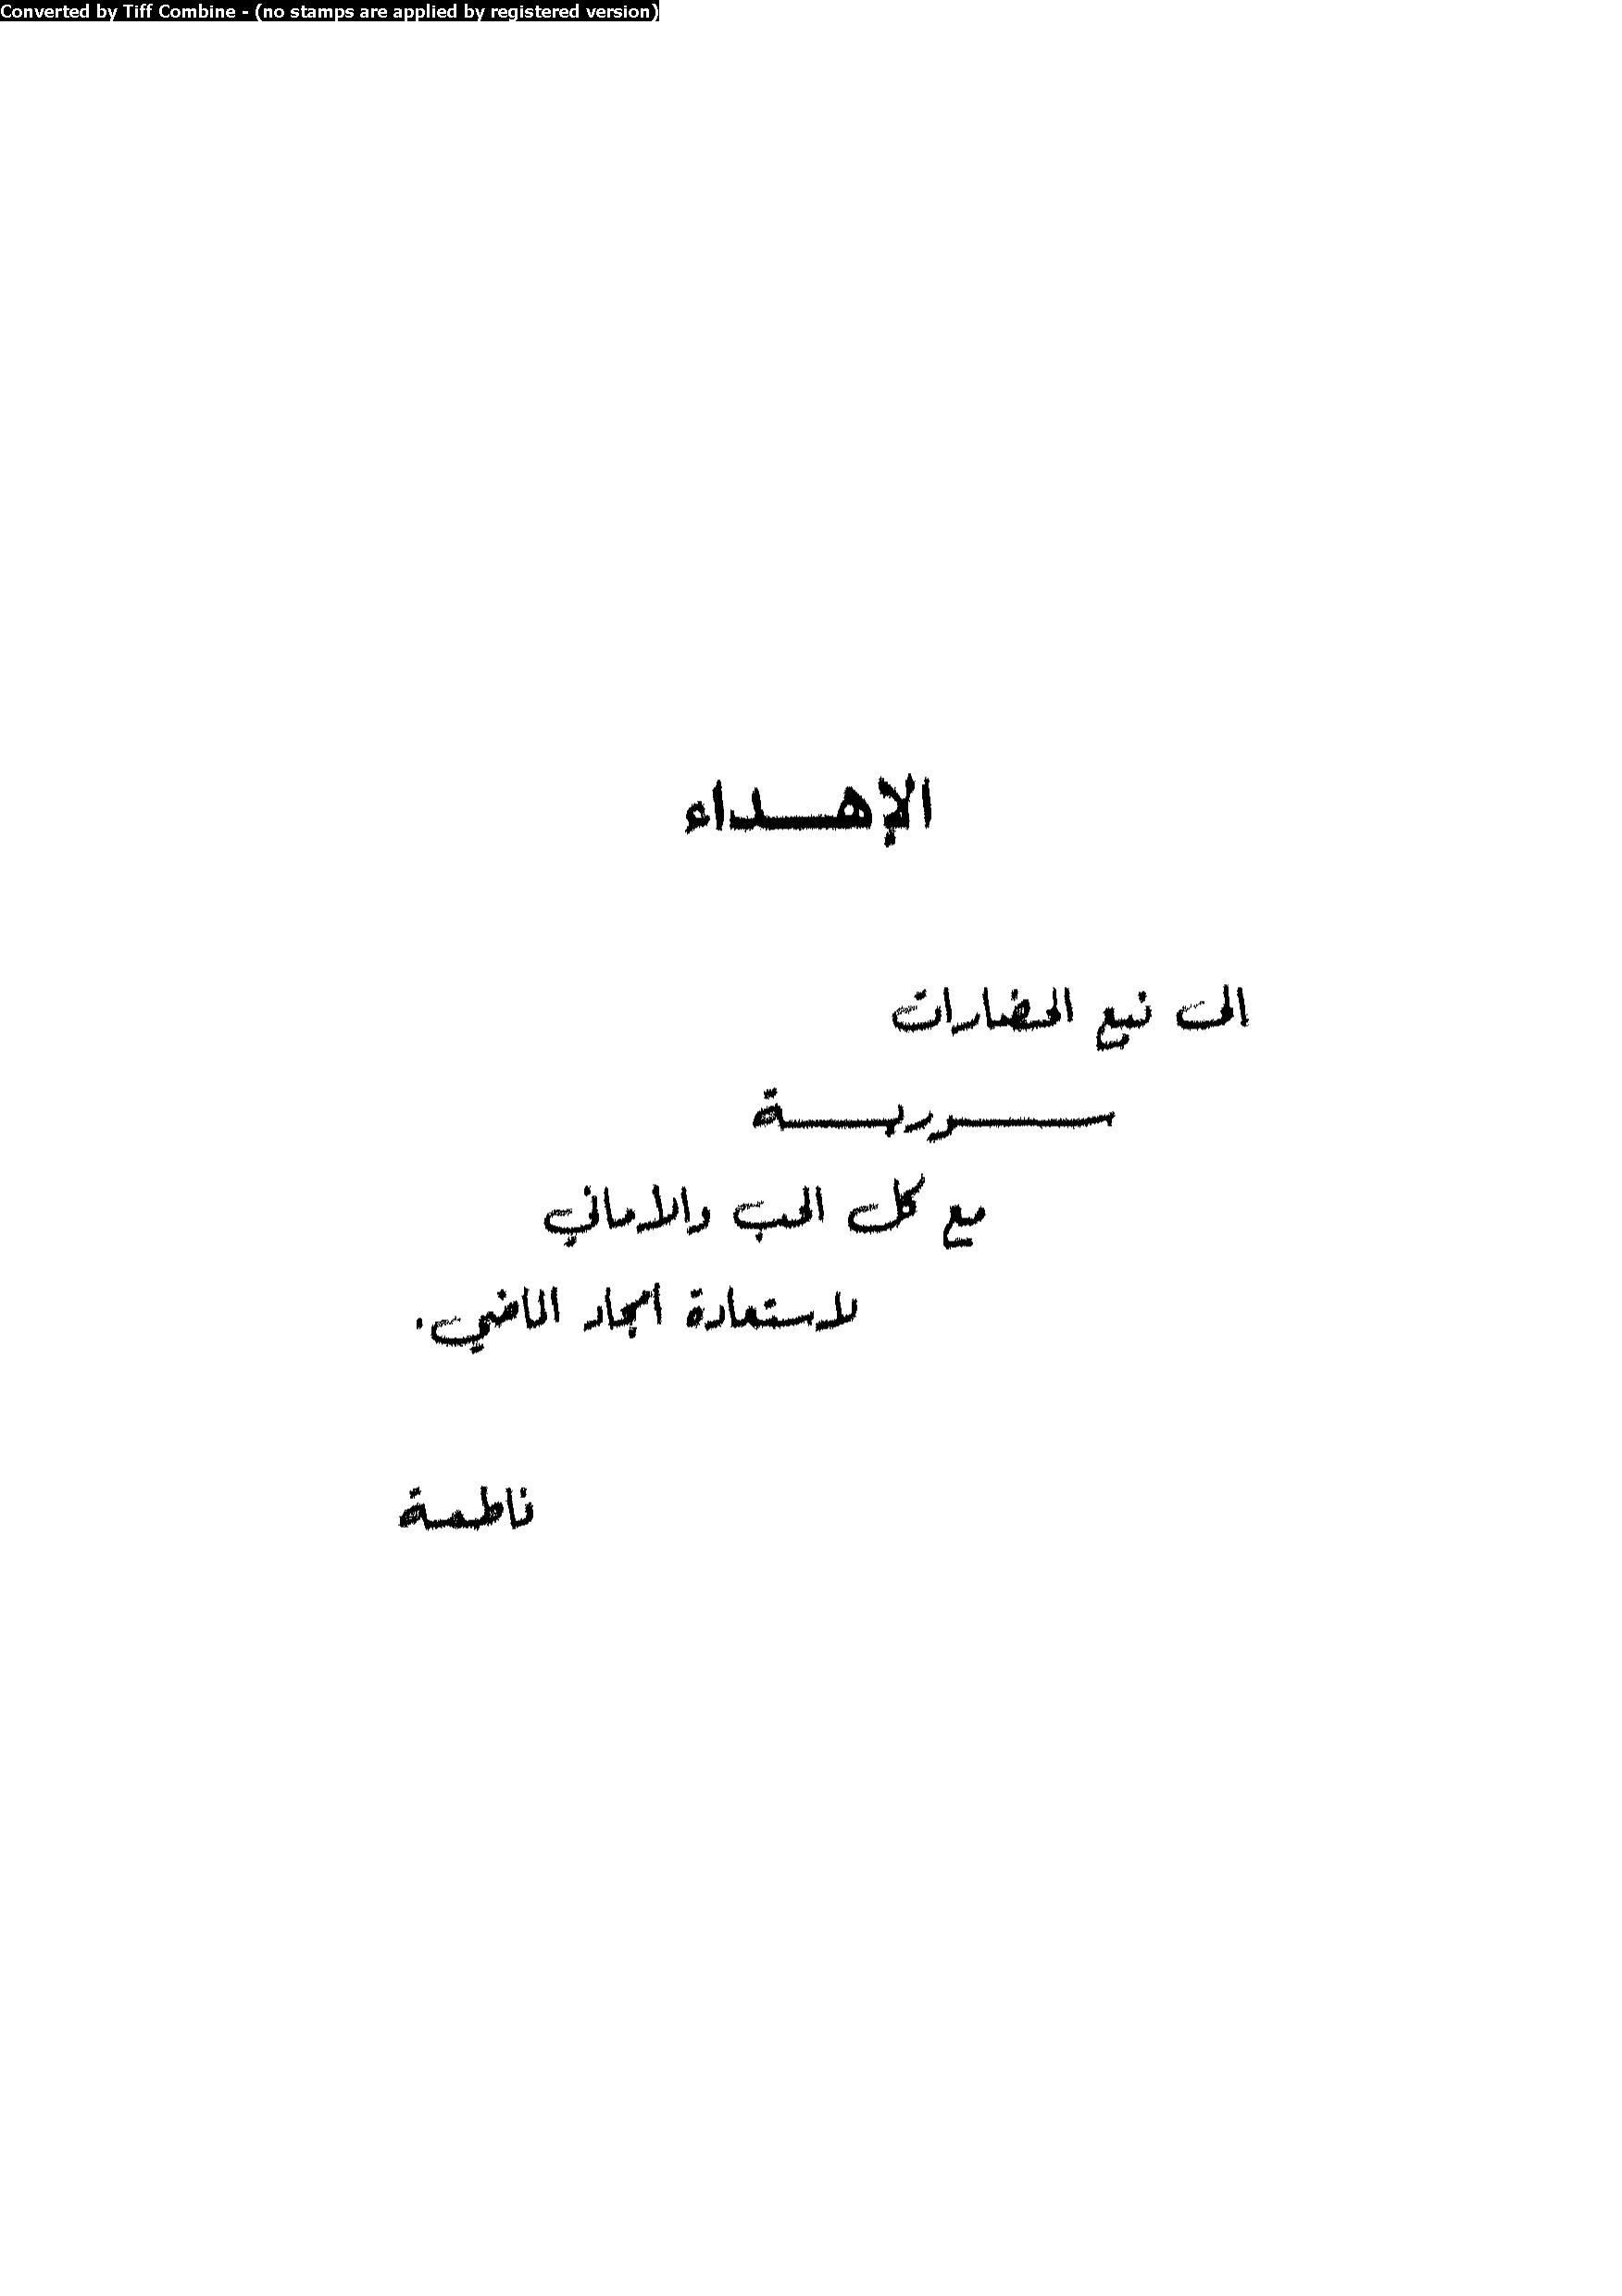 Converted by Tiff Combine - (no stamps are applied by registered version)
الإهــداء
الى نبع الحضارات
ســوريــة
مع كل الحب والأماني
لاستعادة أمجاد الماضي.
فاطمة